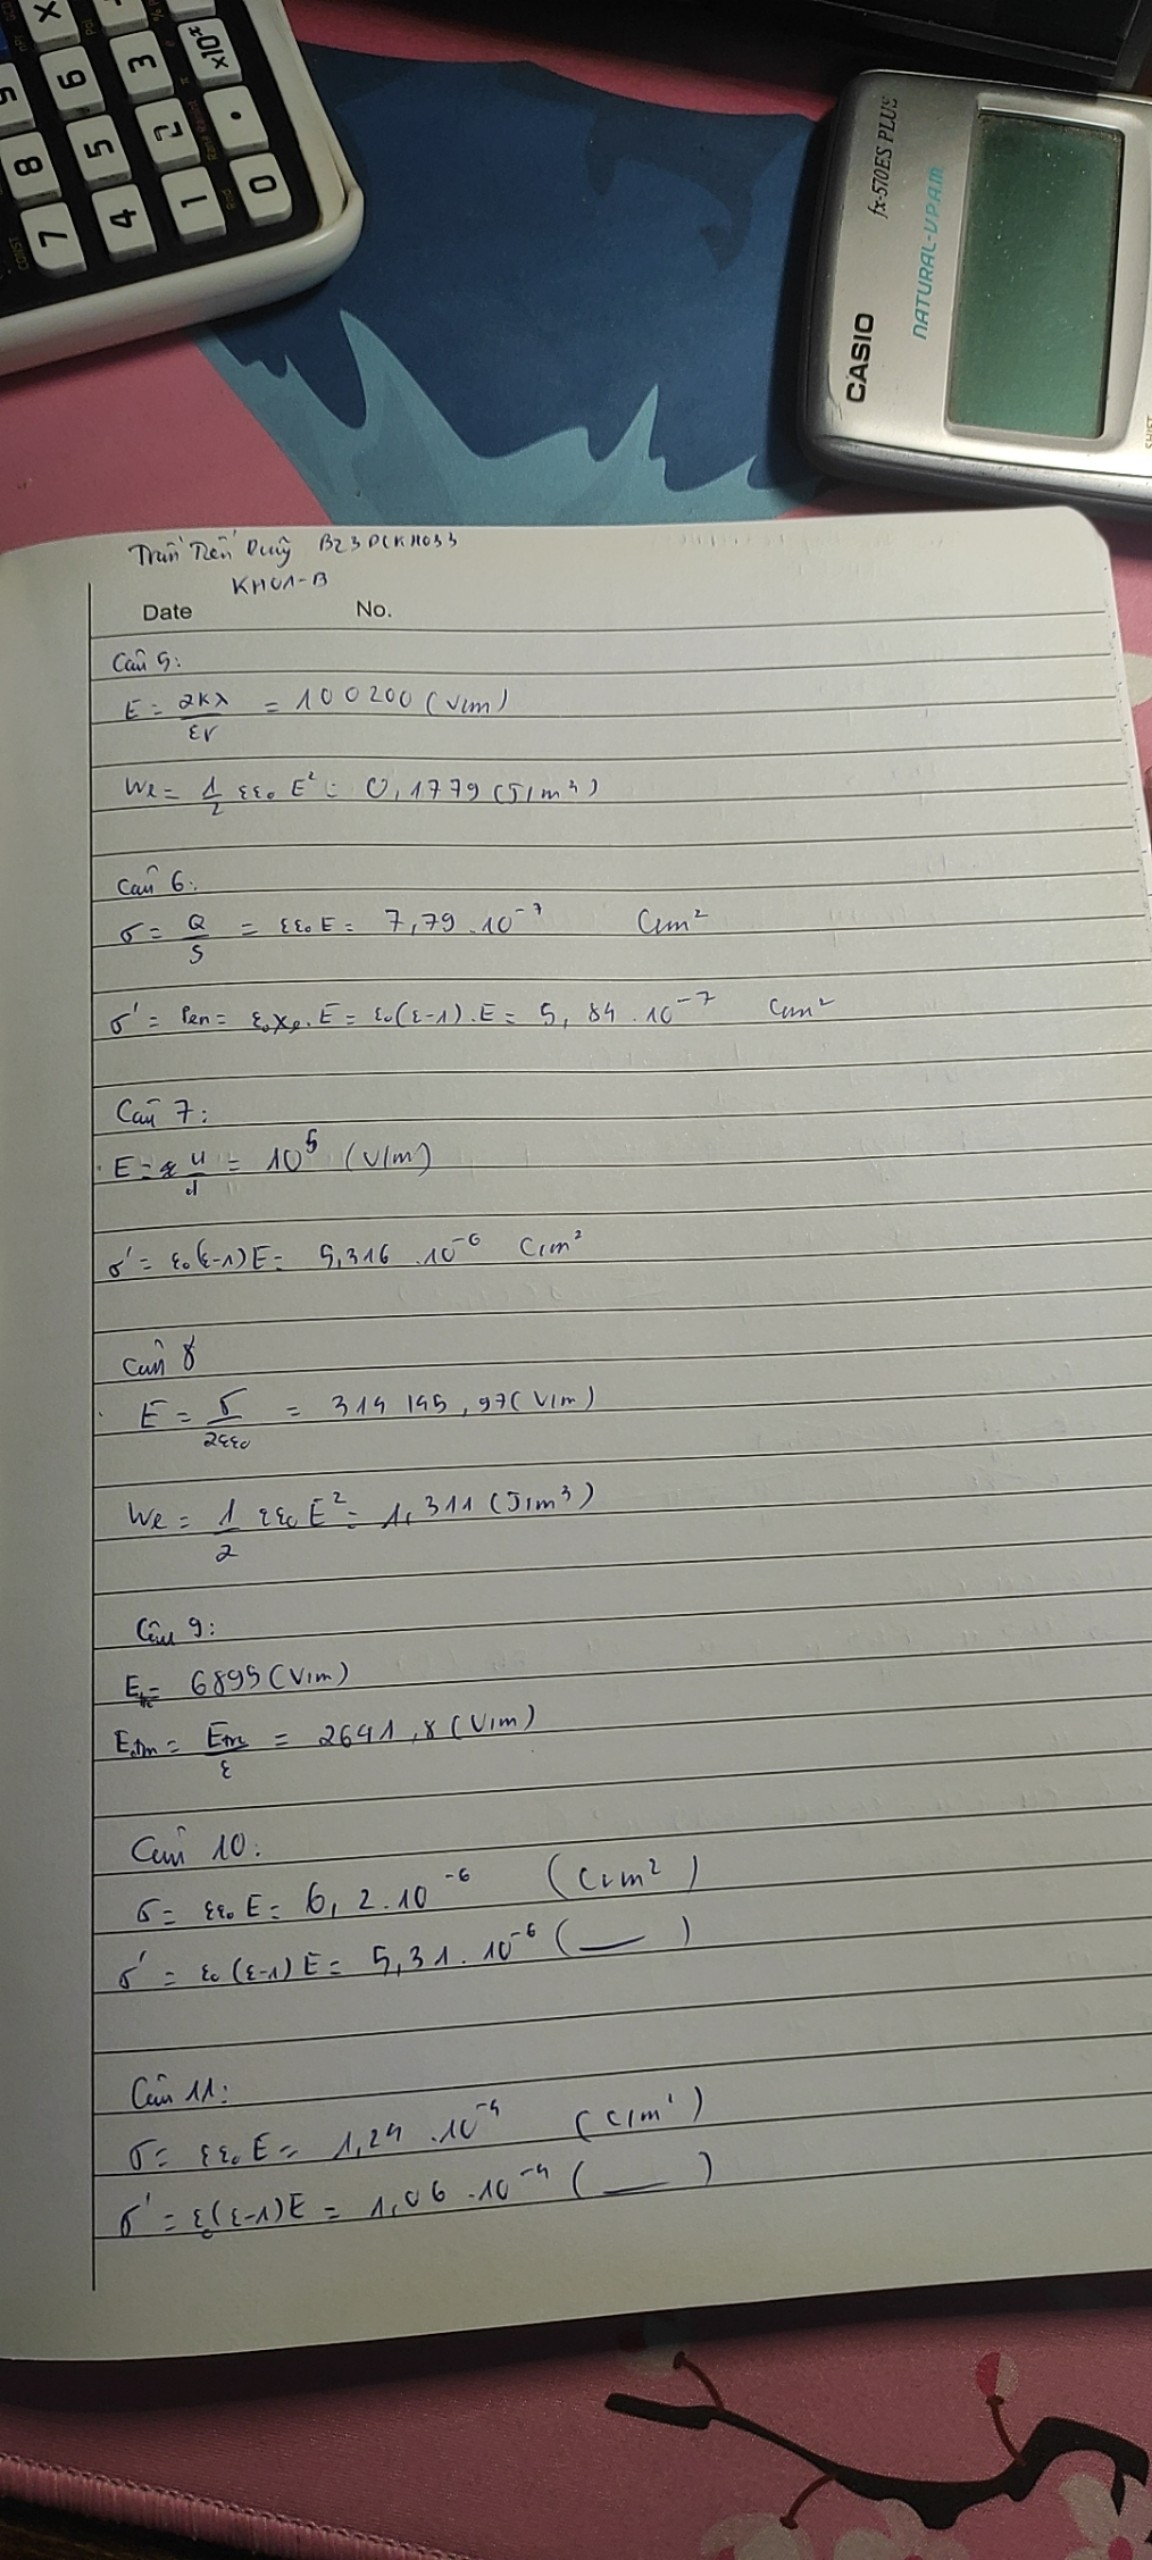 ×10ˣ
3
6
•
2
5
8
0
1
4
7
CONST
Pol
Rnd
fx-570ES PLUS
NATURAL-V.P.A.M.
CASIO
SHIFT
Trần Tiến Duỹ B23DCKH033
KH01-B
Date No.
Câu 5:
E = 2kλ/εr = 100200 (V/m)
We = 1/2 εε₀ E² = 0,1779 (J/m³)
Câu 6:
σ = Q/S = εε₀E = 7,79.10⁻⁷ C/m²
σ' = Pen = ε₀χₑ.E = ε₀(ε-1).E = 5,84.10⁻⁷ C/m²
Câu 7:
E = U/d = 10⁵ (V/m)
σ' = ε₀(ε-1)E = 5,316.10⁻⁶ C/m²
Câu 8
E = σ/2εε₀ = 314 145,97 (V/m)
We = 1/2 εε₀ E² = 1,311 (J/m³)
Câu 9:
E = 6895 (V/m)
= Em/ε = 2641,8 (V/m)
Câu 10:
σ = εε₀E = 6,2.10⁻⁶ (C/m²)
σ' = ε₀(ε-1)E = 5,31.10⁻⁶ (—)
Câu 11:
σ = εε₀E = 1,24.10⁻⁴ (C/m²)
σ' = ε₀(ε-1)E = 1,06.10⁻⁴ (—)